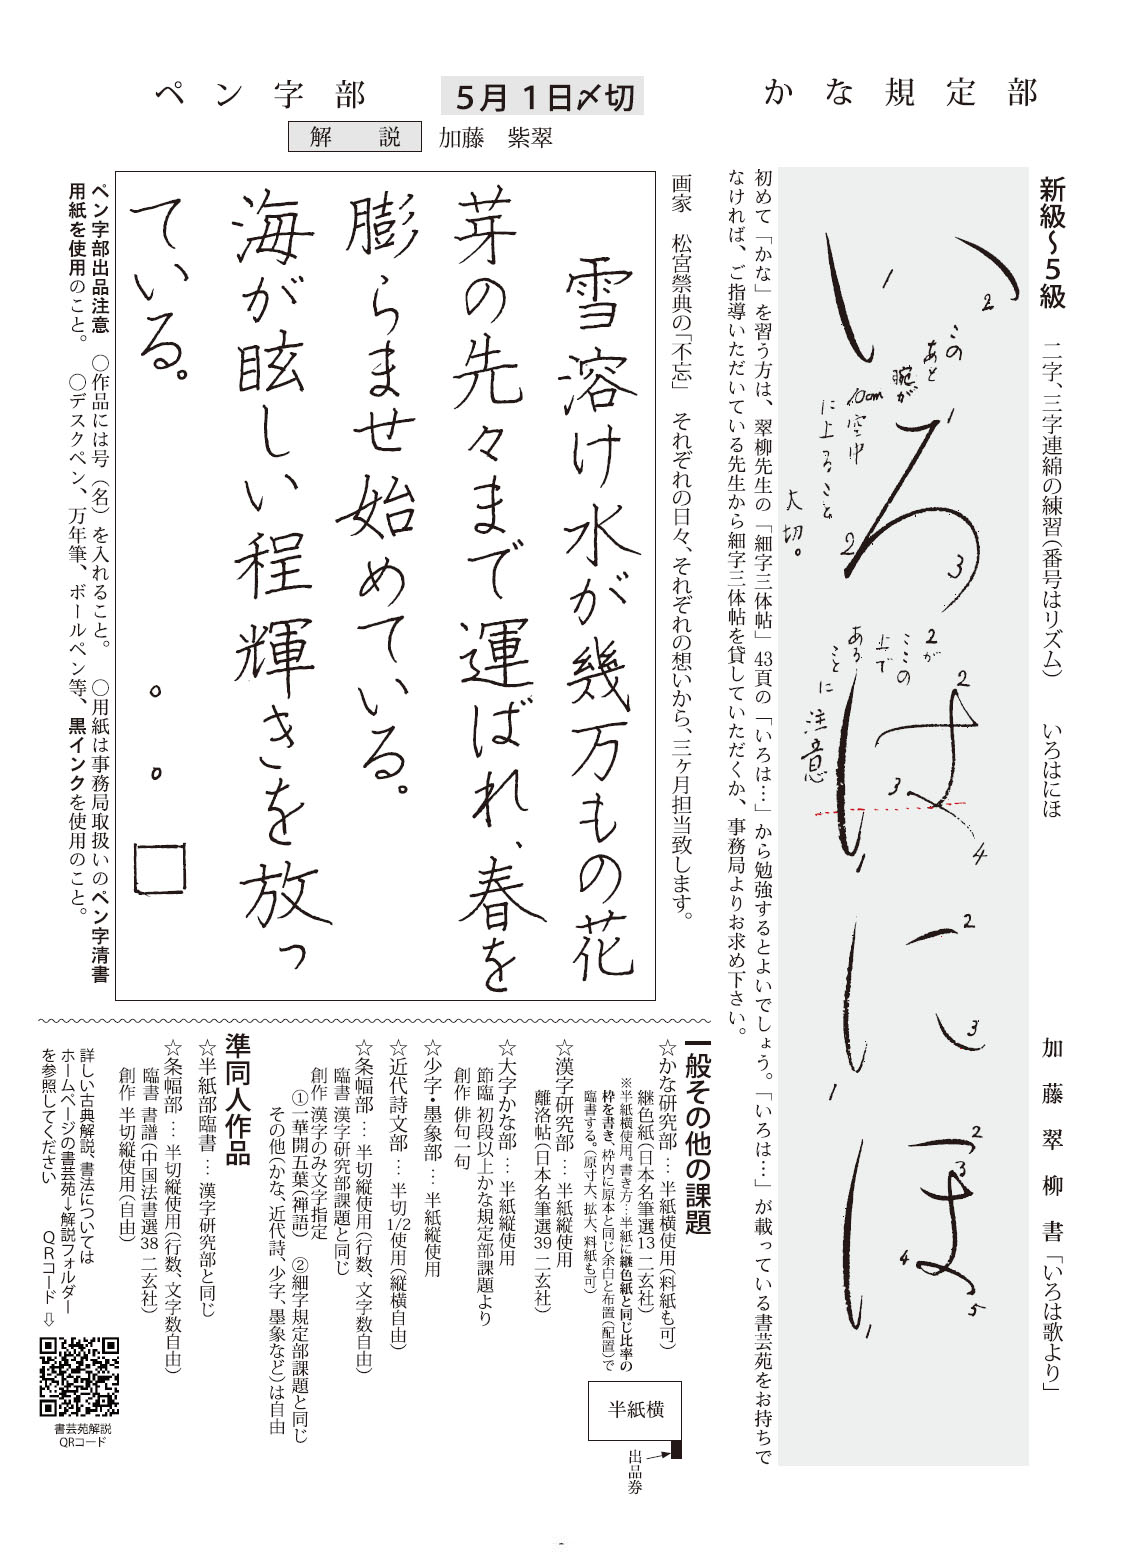 かな規定部
新級〜5級　二字、三字連綿の練習(番号はリズム)　いろはにほ　加藤翠柳書「いろは歌より」
い
ろ
は
に
ほ
1
2
このあと
腕が
10cm空中
に上ること
大切。
1
2
3
2が
ここの
上で
ある
ことに
注意
1
2
3
4
1
2
3
1
2
3
4
5
初めて「かな」を習う方は、翠柳先生の「細字三体帖」43頁の「いろは…」から勉強するとよいでしょう。「いろは…」が載っている書芸苑をお持ちで
なければ、ご指導いただいている先生から細字三体帖を貸していただくか、事務局よりお求め下さい。
5月1日〆切
ペン字部
解説　加藤　紫翠
画家　松宮榮典の「不忘」　それぞれの日々、それぞれの想いから、三ヶ月担当致します。
雪溶け水が幾万もの花
芽の先々まで運ばれ、春を
膨らませ始めている。
海が眩しい程輝きを放っ
ている。　。。□
ペン字部出品注意　○作品には号（名）を入れること。　○用紙は事務局取扱いのペン字清書
用紙を使用のこと。　○デスクペン、万年筆、ボールペン等、黒インクを使用のこと。
一般その他の課題
☆かな研究部…半紙横使用(料紙も可)
継色紙(日本名筆選13 二玄社)
※半紙横使用。書き方…半紙に継色紙と同じ比率の
枠を書き、枠内に原本と同じ余白と布置(配置)で
臨書する。(原寸大、拡大、料紙も可)
半紙横
出品券
☆漢字研究部…半紙縦使用
離洛帖(日本名筆選39 二玄社)
☆大字かな部…半紙縦使用
節臨 初段以上かな規定部課題より
創作 俳句一句
☆少字・墨象部…半紙縦使用
☆近代詩文部…半切1/2使用(縦横自由)
☆条幅部…半切縦使用(行数、文字数自由)
臨書 漢字研究部課題と同じ
創作 漢字のみ文字指定
①一華開五葉(禅語)　②細字規定部課題と同じ
その他(かな、近代詩、少字、墨象など)は自由
準同人作品
☆半紙部臨書…漢字研究部と同じ
☆条幅部…半切縦使用(行数、文字数自由)
臨書 書譜(中国法書選38 二玄社)
創作 半切縦使用(自由)
詳しい古典解説、書法については
ホームページの書芸苑→解説フォルダー
を参照してください　QRコード⇩
書芸苑解説
QRコード